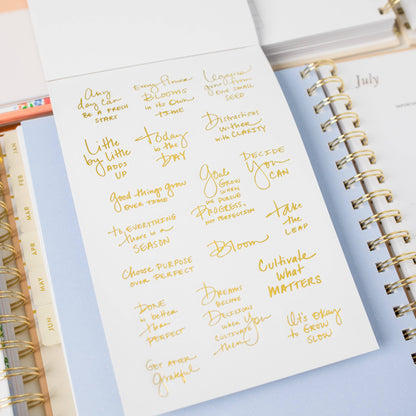 Any
day can
be a fresh
start
Every flower
Blooms
in its own
time
Legacies
grow from
one small
seed
Little
by little
adds
up
today
is the
DAY
Distractions
wither
with CLARITY
good things grow
over time
Goals
GROW
when
we pursue
Progress,
not perfection
DECIDE
You
CAN
to EVERYTHING
there is a
SEASON
Bloom
take
the
LEAP
Choose PURPOSE
over PERFECT
Cultivate
what
MATTERS
DONE
is better
than
PERFECT
DREAMS
become
DECISIONS
when You
cultivate
them
It's okay
to GROW
SLOW
GOT AFTER
Grateful
July
JAN
FEB
MAR
APR
MAY
JUN